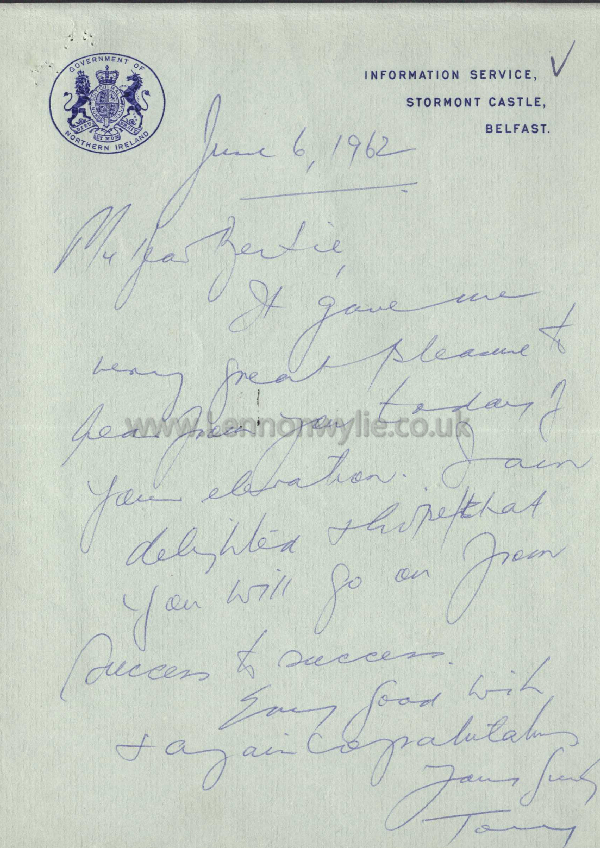 GOVERNMENT OF
NORTHERN IRELAND
INFORMATION SERVICE,
STORMONT CASTLE,
BELFAST.
June 6, 1962
My dear Bertie,
It gave me
very great pleasure to
hear from you today of
your elevation. I am
delighted & hope that
you will go on from
success to success.
Every good wish
& again congratulations
Yours
www.Lennonwylie.co.uk